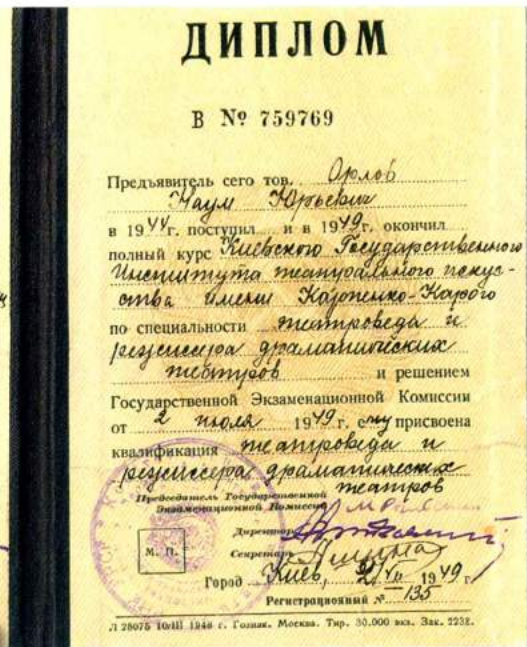 ДИПЛОМ
В № 759769
Предъявитель сего тов. Орлов
Наум Юрьевич
в 1944г. поступил и в 1949г. окончил
полный курс Киевского Государственного
Института театрального искус-
ства имени Карпенко-Карого
по специальности театроведа и
режиссера драматических
театров и решением
Государственной Экзаменационной Комиссии
от 2 июля 1949г. ему присвоена
квалификация театроведа и
режиссера драматических
театров
Председатель Государственной
Экзаменационной Комиссии
Директор
М. П.
Секретарь
Город Киев, VII 1949г.
Регистрационный № 135
Л 28075 10/III 1948 г. Гознак. Москва. Тир. 30.000 экз. Зак. 2232.